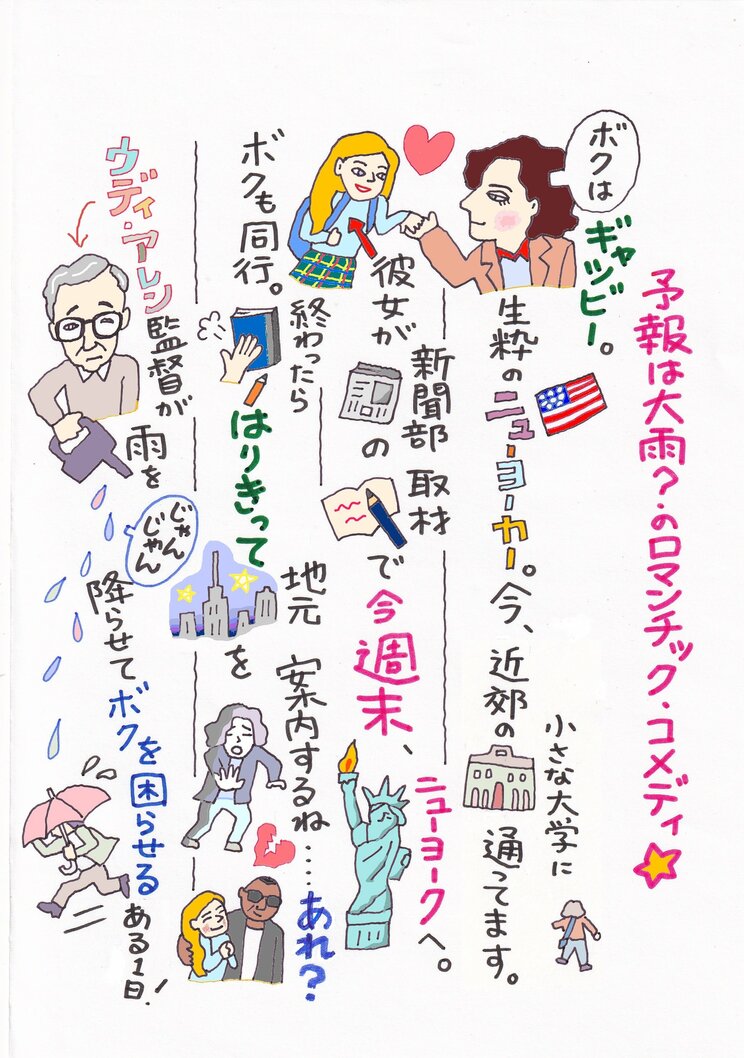 予報は大雨?のロマンチック・コメディ
ボクは
ギャツビー。
生粋のニューヨーカー。今、近郊の
小さな大学に
通ってます。
彼女が
新聞部の
取材で今週末、
ニューヨークへ。
ボクも同行。
終わったら
はりきって
地元を
案内するね‥‥あれ?
ウディ・アレン
監督が
雨を
じゃん
じゃん
降らせてボクを困らせる
ある1日!